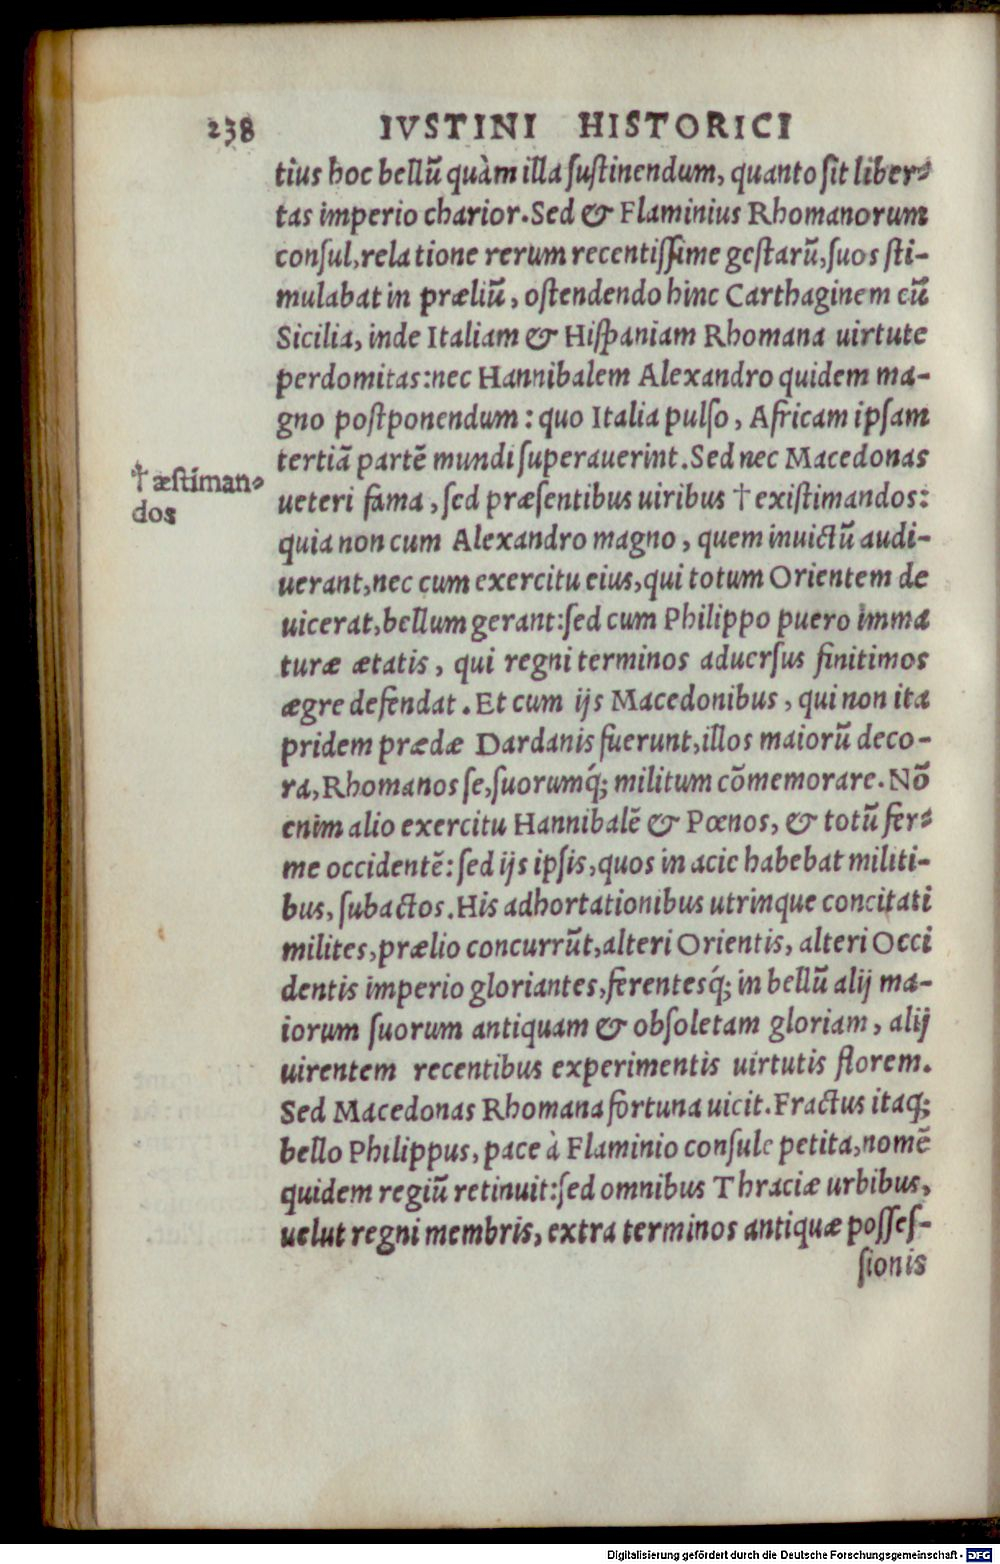 238 IVSTINI HISTORICI
tius hoc bellũ quàm illa ſuſtinendum, quanto ſit liber-
tas imperio charior. Sed & Flaminius Rhomanorum
conſul, relatione rerum recentiſſime geſtarũ, ſuos ſti-
mulabat in præliũ, oſtendendo hinc Carthaginem cũ
Sicilia, inde Italiam & Hiſpaniam Rhomana uirtute
perdomitas: nec Hannibalem Alexandro quidem ma-
gno poſtponendum: quo Italia pulſo, Africam ipſam
tertiã partẽ mundi ſuperauerint. Sed nec Macedonas
† æſtiman-
dos
ueteri fama, ſed præſentibus uiribus † exiſtimandos:
quia non cum Alexandro magno, quem inuictũ audi-
uerant, nec cum exercitu eius, qui totum Orientem de
uicerat, bellum gerant: ſed cum Philippo puero imma
turæ ætatis, qui regni terminos aduerſus finitimos
ægre defendat. Et cum ijs Macedonibus, qui non ita
pridem prædæ Dardanis fuerunt, illos maiorũ deco-
ra, Rhomanos ſe, ſuorumq́; militum cõmemorare. Nõ
enim alio exercitu Hannibalẽ & Pœnos, & totũ fer-
me occidentẽ: ſed ijs ipſis, quos in acie habebat militi-
bus, ſubactos. His adhortationibus utrinque concitati
milites, prælio concurrũt, alteri Orientis, alteri Occi
dentis imperio gloriantes, ferentesq́; in bellũ alij ma-
iorum ſuorum antiquam & obſoletam gloriam, alij
uirentem recentibus experimentis uirtutis florem.
Sed Macedonas Rhomana fortuna uicit. Fractus itaq;
bello Philippus, pace à Flaminio conſule petita, nomẽ
quidem regiũ retinuit: ſed omnibus Thraciæ urbibus,
uelut regni membris, extra terminos antiquæ poſſeſ-
ſionis
Digitalisierung gefördert durch die Deutsche Forschungsgemeinschaft - DFG